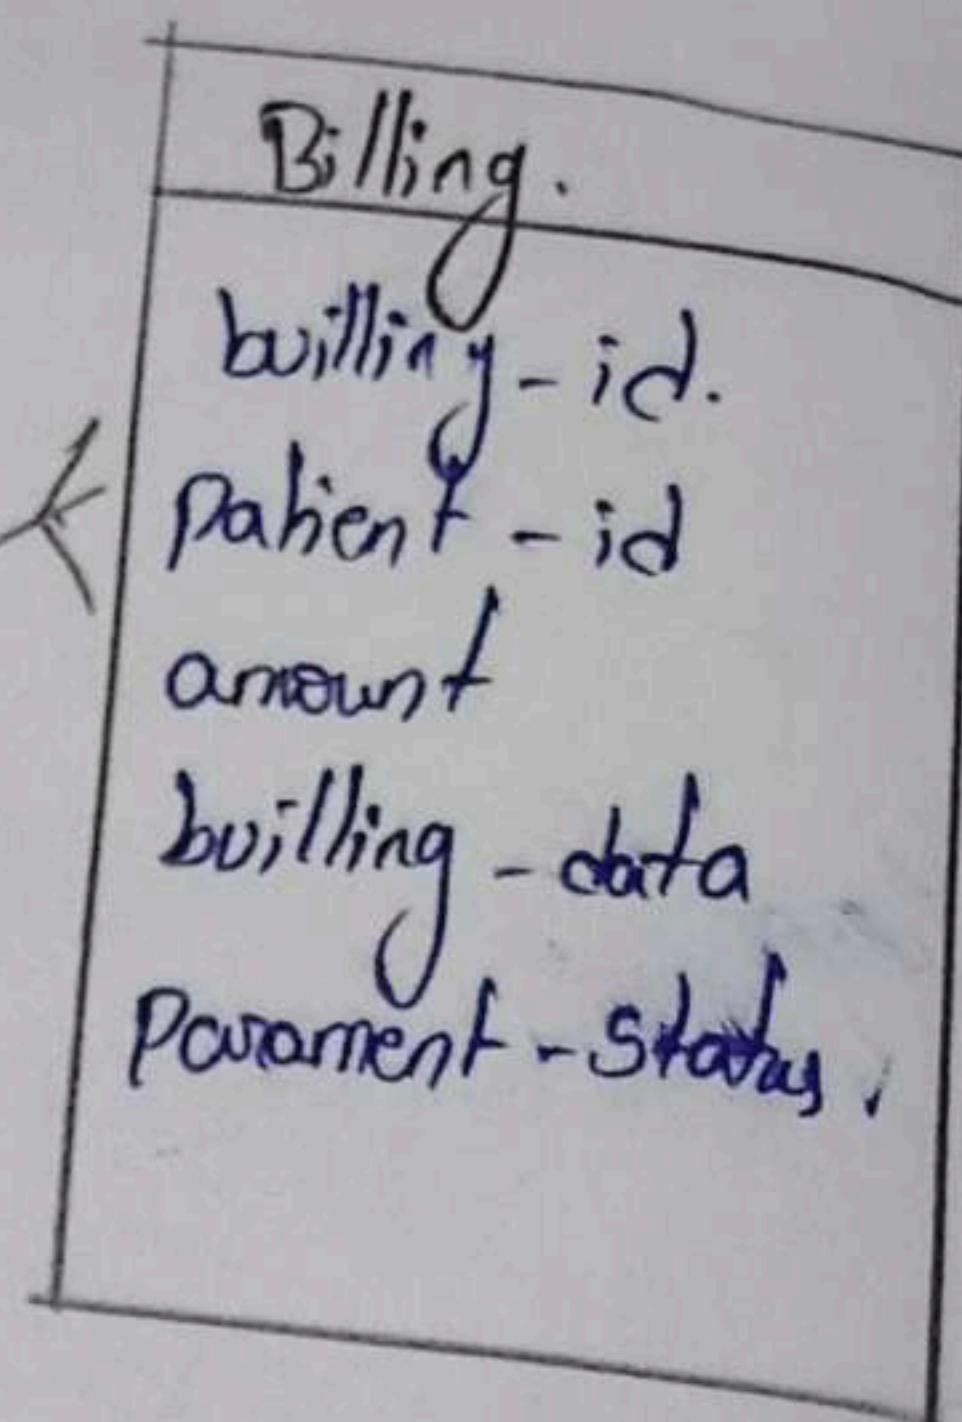 Billing.
builling - id.
patient - id
amount
builling - data
Parament - status.